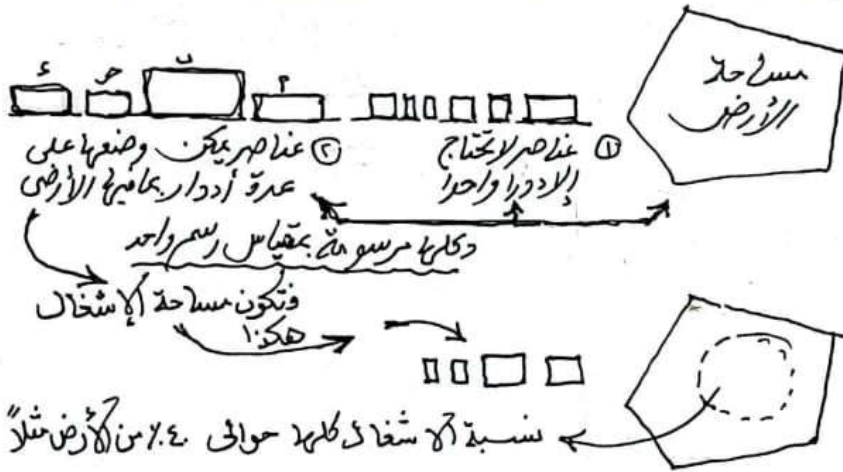 مساحة
الأرض
أ ب ج د
① عناصر لا تحتاج
إلا دورا واحدا
② عناصر يمكن وضعها على
عدة أدوار بما فيها الأرضى
وكلها مرسومة بمقياس رسم واحد
فتكون مساحة الإشغال
هكذا
نسبة الاشغال كلها حوالى ٤٠٪ من الأرض مثلاً